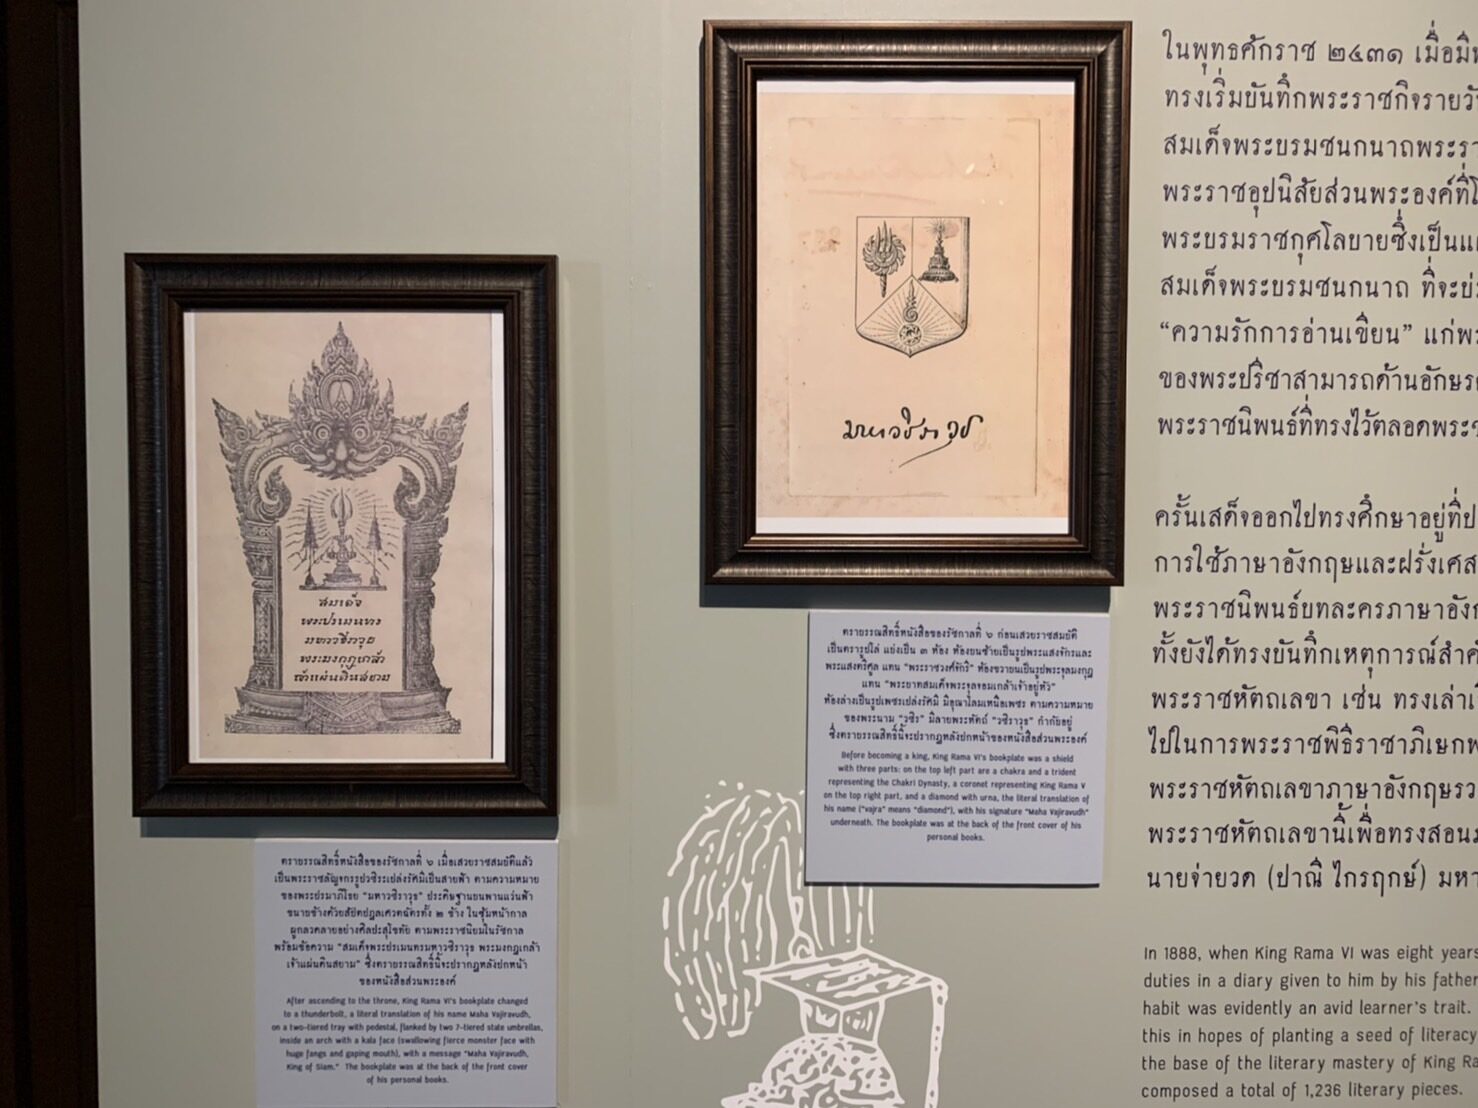 สมเด็จ
พระปรเมนทร
มหาวชิราวุธ
พระมงกุฎเกล้า
เจ้าแผ่นดินสยาม
ตราบรรณสิทธิ์หนังสือของรัชกาลที่ ๖ เมื่อเสวยราชสมบัติแล้ว
เป็นพระราชลัญจกรรูปวชิระเปล่งรัศมีเป็นสายฟ้า ตามความหมาย
ของพระปรมาภิไธย "มหาวชิราวุธ" ประดิษฐานบนพานแว่นฟ้า
ขนาบข้างด้วยสัปตปฎลเศวตฉัตรทั้ง ๒ ข้าง ในซุ้มหน้ากาล
ผูกลวดลายอย่างศิลปะสุโขทัย ตามพระราชนิยมในรัชกาล
พร้อมข้อความ "สมเด็จพระปรเมนทรมหาวชิราวุธ พระมงกุฎเกล้า
เจ้าแผ่นดินสยาม" ซึ่งตราบรรณสิทธิ์นี้จะปรากฏหลังปกหน้า
ของหนังสือส่วนพระองค์
After ascending to the throne, King Rama VI's bookplate changed
to a thunderbolt, a literal translation of his name Maha Vajiravudh,
on a two-tiered tray with pedestal, flanked by two 7-tiered state umbrellas,
inside an arch with a kala face (swallowing fierce monster face with
huge fangs and gaping mouth), with a message "Maha Vajiravudh,
King of Siam." The bookplate was at the back of the front cover
of his personal books.
มหาวชิราวุธ
ตราบรรณสิทธิ์หนังสือของรัชกาลที่ ๖ ก่อนเสวยราชสมบัติ
เป็นตรารูปโล่ แบ่งเป็น ๓ ห้อง ห้องบนซ้ายเป็นรูปพระแสงจักรและ
พระแสงตรีศูล แทน "พระราชวงศ์จักรี" ห้องขวาบนเป็นรูปพระจุลมงกุฎ
แทน "พระบาทสมเด็จพระจุลจอมเกล้าเจ้าอยู่หัว"
ห้องล่างเป็นรูปเพชรเปล่งรัศมี มีอุณาโลมเหนือเพชร ตามความหมาย
ของพระนาม "วชิร" มีลายพระหัตถ์ "วชิราวุธ" กำกับอยู่
ซึ่งตราบรรณสิทธิ์นี้จะปรากฏหลังปกหน้าของหนังสือส่วนพระองค์
Before becoming a king, King Rama VI's bookplate was a shield
with three parts: on the top left part are a chakra and a trident
representing the Chakri Dynasty, a coronet representing King Rama V
on the top right part, and a diamond with urna, the literal translation of
his name ("vajra" means "diamond"), with his signature "Maha Vajiravudh"
underneath. The bookplate was at the back of the front cover of his
personal books.
ในพุทธศักราช ๒๔๓๑ เมื่อมี
ทรงเริ่มบันทึกพระราชกิจรายวั
สมเด็จพระบรมชนกนาถพระรา
พระราชอุปนิสัยส่วนพระองค์ที่
พระบรมราชกุศโลบายซึ่งเป็น
สมเด็จพระบรมชนกนาถ ที่จะ
"ความรักการอ่านเขียน" แก่พร
ของพระปรีชาสามารถด้านอักษร
พระราชนิพนธ์ที่ทรงไว้ตลอดพระช
ครั้นเสด็จออกไปทรงศึกษาอยู่ที่ป
การใช้ภาษาอังกฤษและฝรั่งเศส
พระราชนิพนธ์บทละครภาษาอัง
ทั้งยังได้ทรงบันทึกเหตุการณ์สำคั
พระราชหัตถเลขา เช่น ทรงเล่า
ไปในการพระราชพิธีราชาภิเษก
พระราชหัตถเลขาภาษาอังกฤษรว
พระราชหัตถเลขานี้เพื่อทรงสอน
นายจ่ายวด (ปาณี ไกรฤกษ์) มหา
In 1888, when King Rama VI was eight years
duties in a diary given to him by his father
habit was evidently an avid learner's trait.
this in hopes of planting a seed of literacy
the base of the literary mastery of King Ra
composed a total of 1,236 literary pieces.